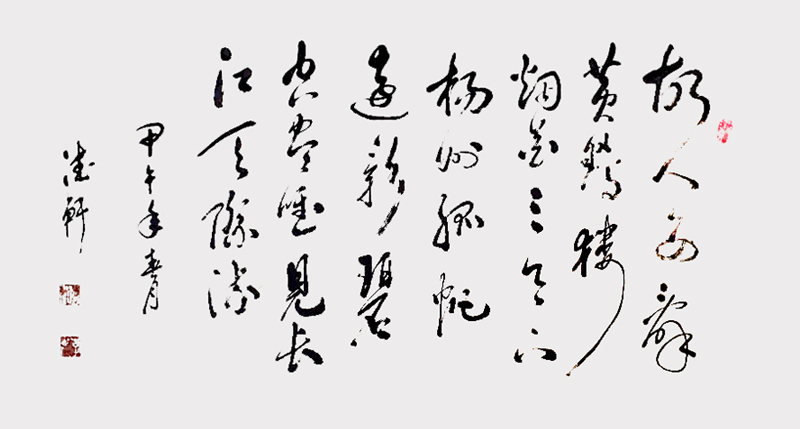 故人西辭
黄鶴樓
烟花三月下
楊州孤帆
遠影碧
空盡唯見長
江天際流
甲午年春月
軒